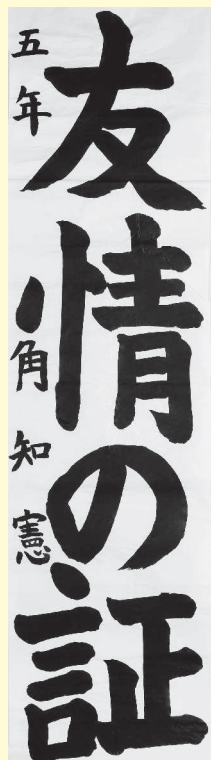 友情の証
五年 角知憲